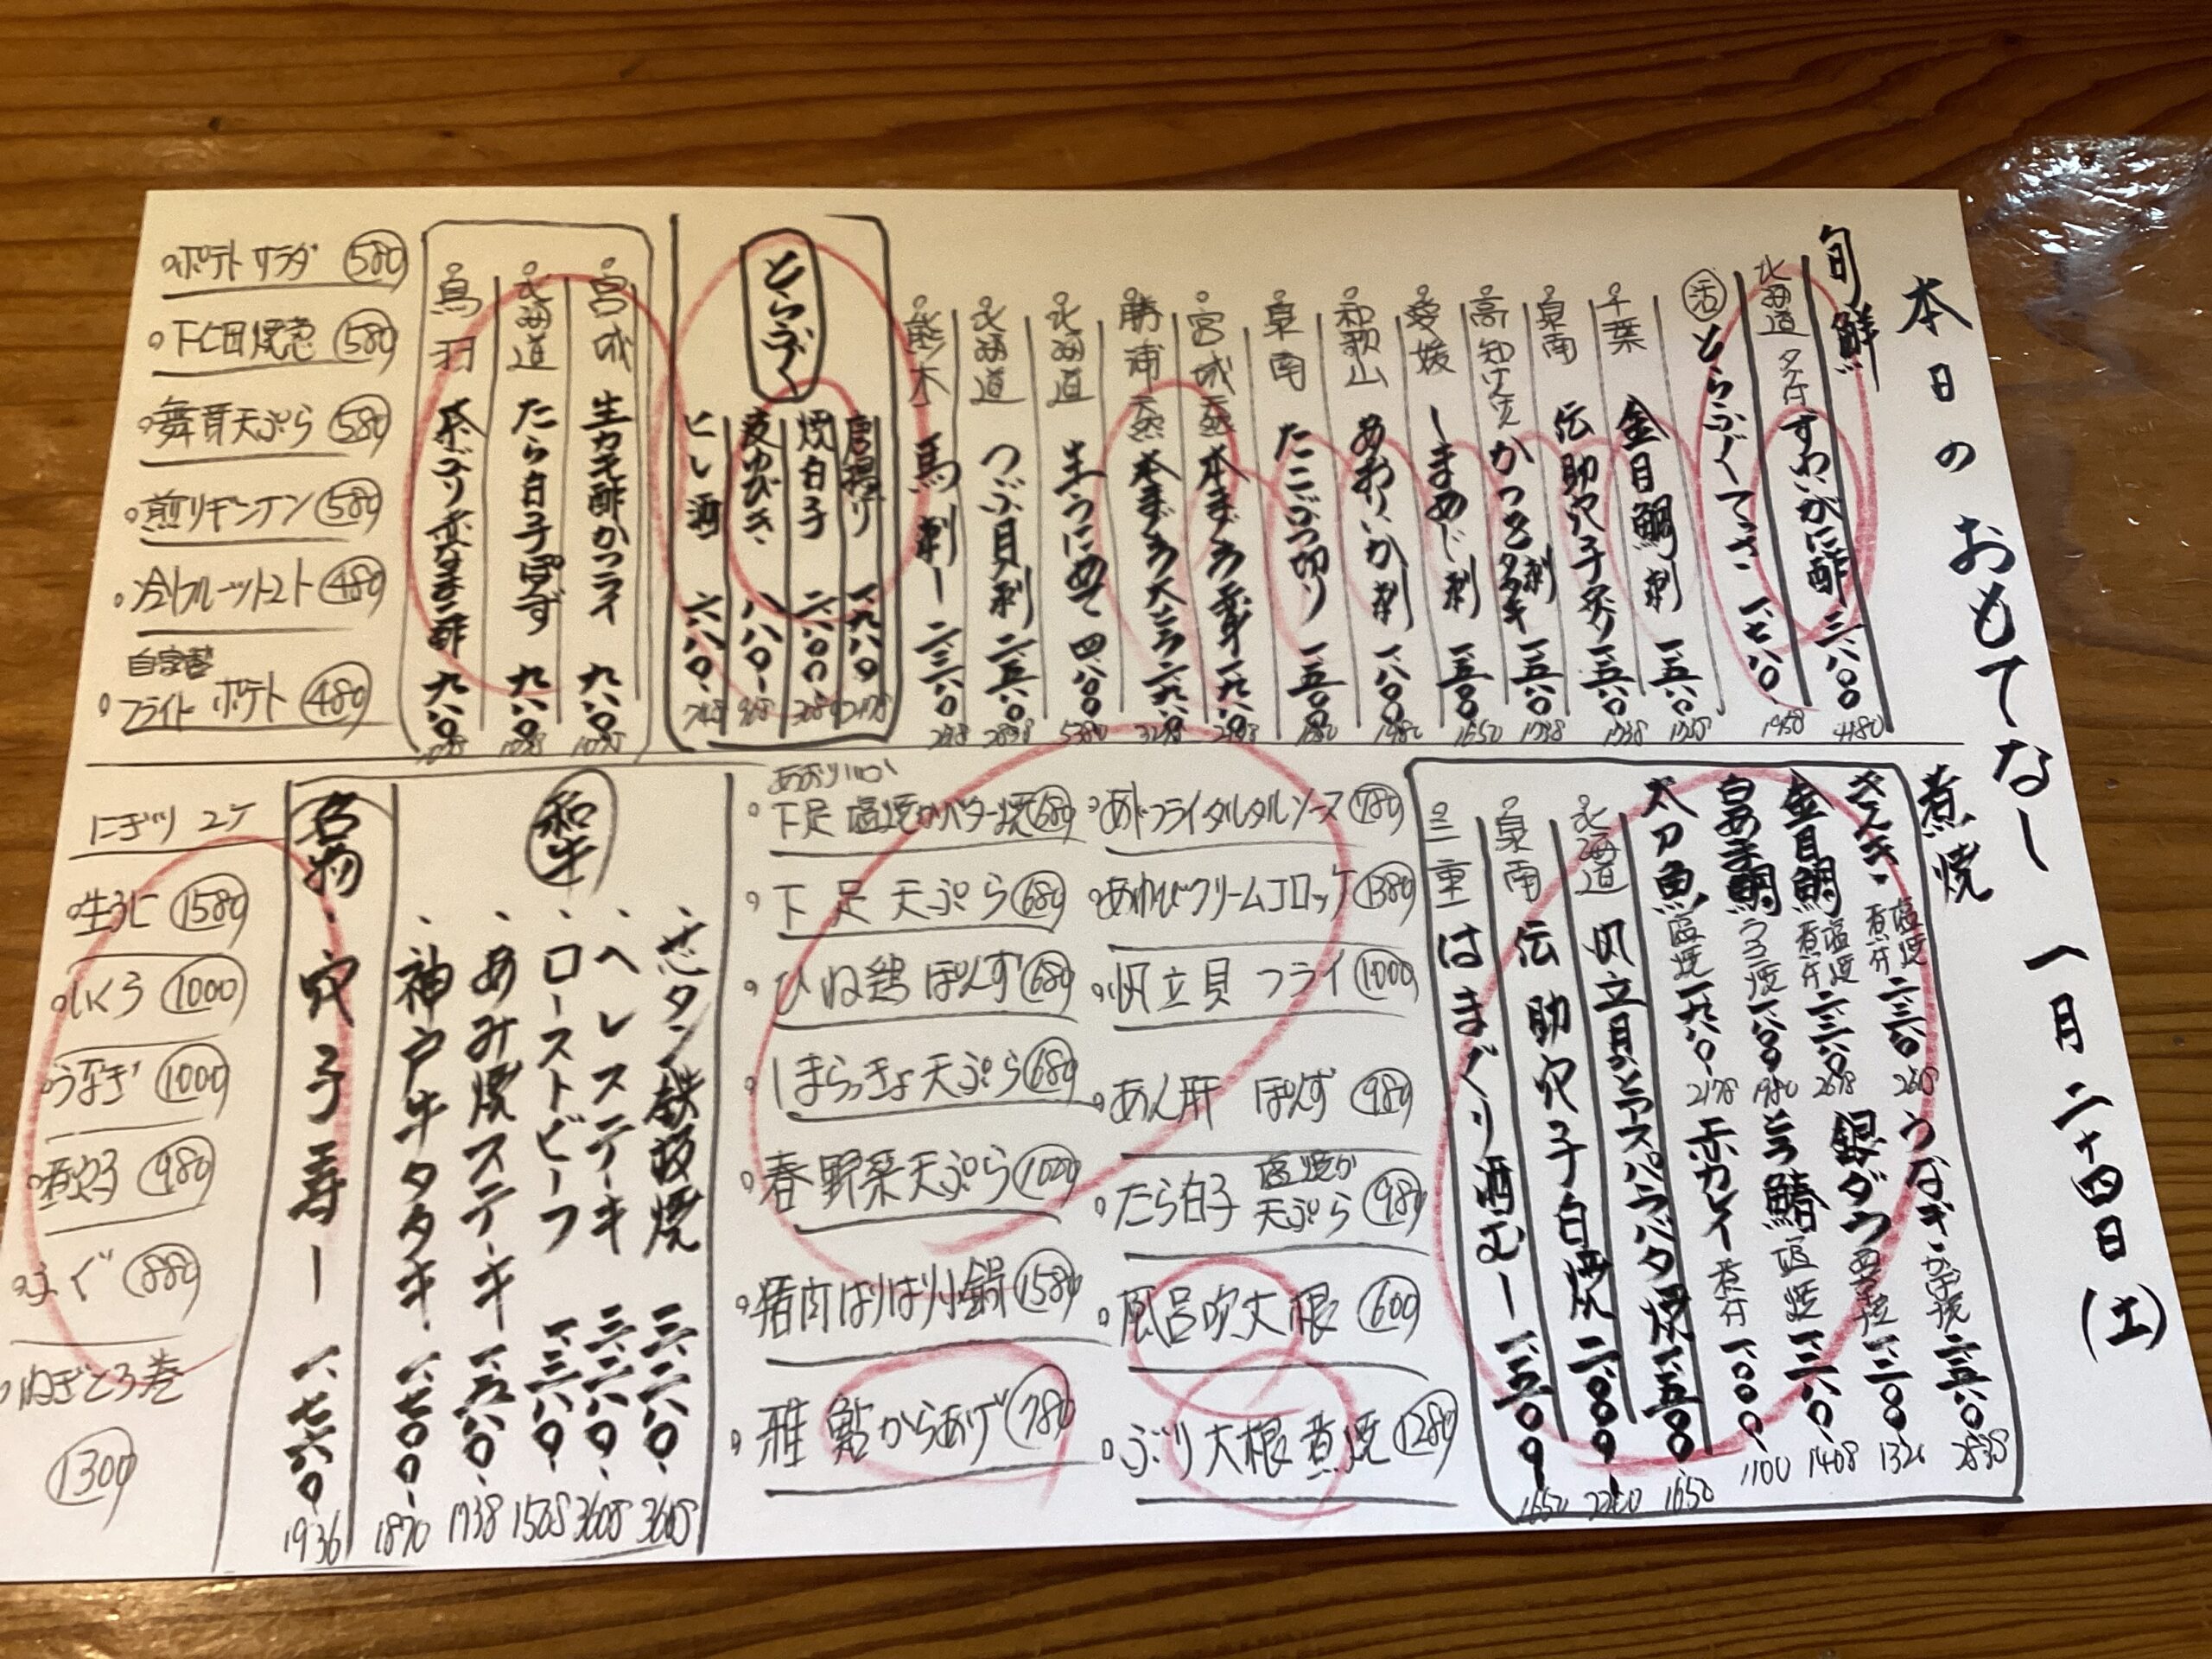 本日のおもてなし 一月二十四日(土)
旬鮮
北海道 タグ付 すわいがに酢 三、八〇〇 4180
活 とらふぐてっさ 一、七八〇 1958
千葉 金目鯛刺 一、五八〇 1738
泉南 伝助穴子炙り 一、五八〇 1738
高知 かつを刺 タタキ 一、五八〇 1738
愛媛 しまあじ刺 一、五〇〇 1650
和歌山 あおりいか刺 一、八〇〇 1980
泉南 たこぶつ切り 一、五〇〇
宮城 天然 本まぐろ 一、九八〇
勝浦 天然 本まぐろ大とろ 二、九八〇 3278
北海道 生うにめて 四、八〇〇 5280
北海道 つぶ貝刺 二、五八〇 2838
熊本 馬刺し 二、三八〇
とらふぐ
唐揚げ 一、九八〇 2178
焼白子 二、八〇〇 3080
皮ゆびき 八八〇 968
ヒレ酒 六八〇 748
宮城 生カキ酢かフライ 九八〇 1078
北海道 たら白子ぽんず 九八〇 1078
鳥羽 茶ぶり赤なまこ酢 九八〇 1078
ポテトサラダ 580
下仁田焼葱 580
舞茸天ぷら 580
煎りギンナン 580
冷しフルーツトマト 480
自家製
フライドポテト 480
煮焼
きんき 塩焼 煮付 二、三八〇 2618
うなぎ かば焼 二、五八〇 2838
金目鯛 塩焼 煮付 二、三八〇 2618
銀ダラ 西京焼 一、二〇〇 1320
白あま鯛 うろこ焼 一、八〇〇 1980
とろ鯖 塩焼 一、二八〇 1408
太刀魚 塩焼 一、九八〇 2178
赤カレイ 煮付 一、〇〇〇 1100
北海道 帆立貝とアスパラバター焼 一、五〇〇 1650
泉南 伝助穴子白焼 二、〇〇〇 2200
三重 はまぐり酒むし 一、五〇〇 1650
あじフライタルタルソース 780
あわびクリームコロッケ 1380
帆立貝フライ 1000
あん肝 ぽんず 980
たら白子 塩焼か 天ぷら 980
風呂吹大根 600
ぶり大根煮焼 1280
あおりいか
下足 塩焼かバター焼 680
下足 天ぷら 680
ひね鶏 ぽんず 680
しまらっきょ天ぷら 680
春野菜天ぷら 1000
猪肉はりはり小鍋 1580
稚鮎からあげ 780
和牛
芯タン鉄板焼 三、二八〇 3608
ヘレステーキ 三、二八〇 3608
ローストビーフ 一、三八〇 1508
あみ焼ステーキ 一、五八〇 1738
神戸牛タタキ 一、七〇〇 1870
名物 穴子寿し 一、七六〇 1936
にぎり 2ケ
生うに 1580
いくら 1000
うなぎ 1000
煮穴子 980
ふぐ 880
ねぎとろ巻
1300